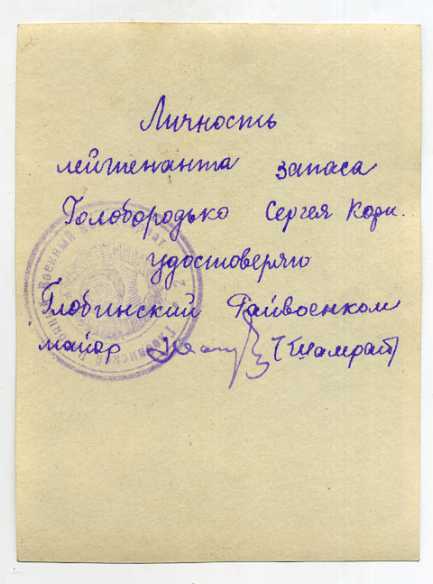 Личность
лейтенанта запаса
Голобородько Сергея Корн.
удостоверяю
Глобинский Райвоенком
майор (Шамрай)